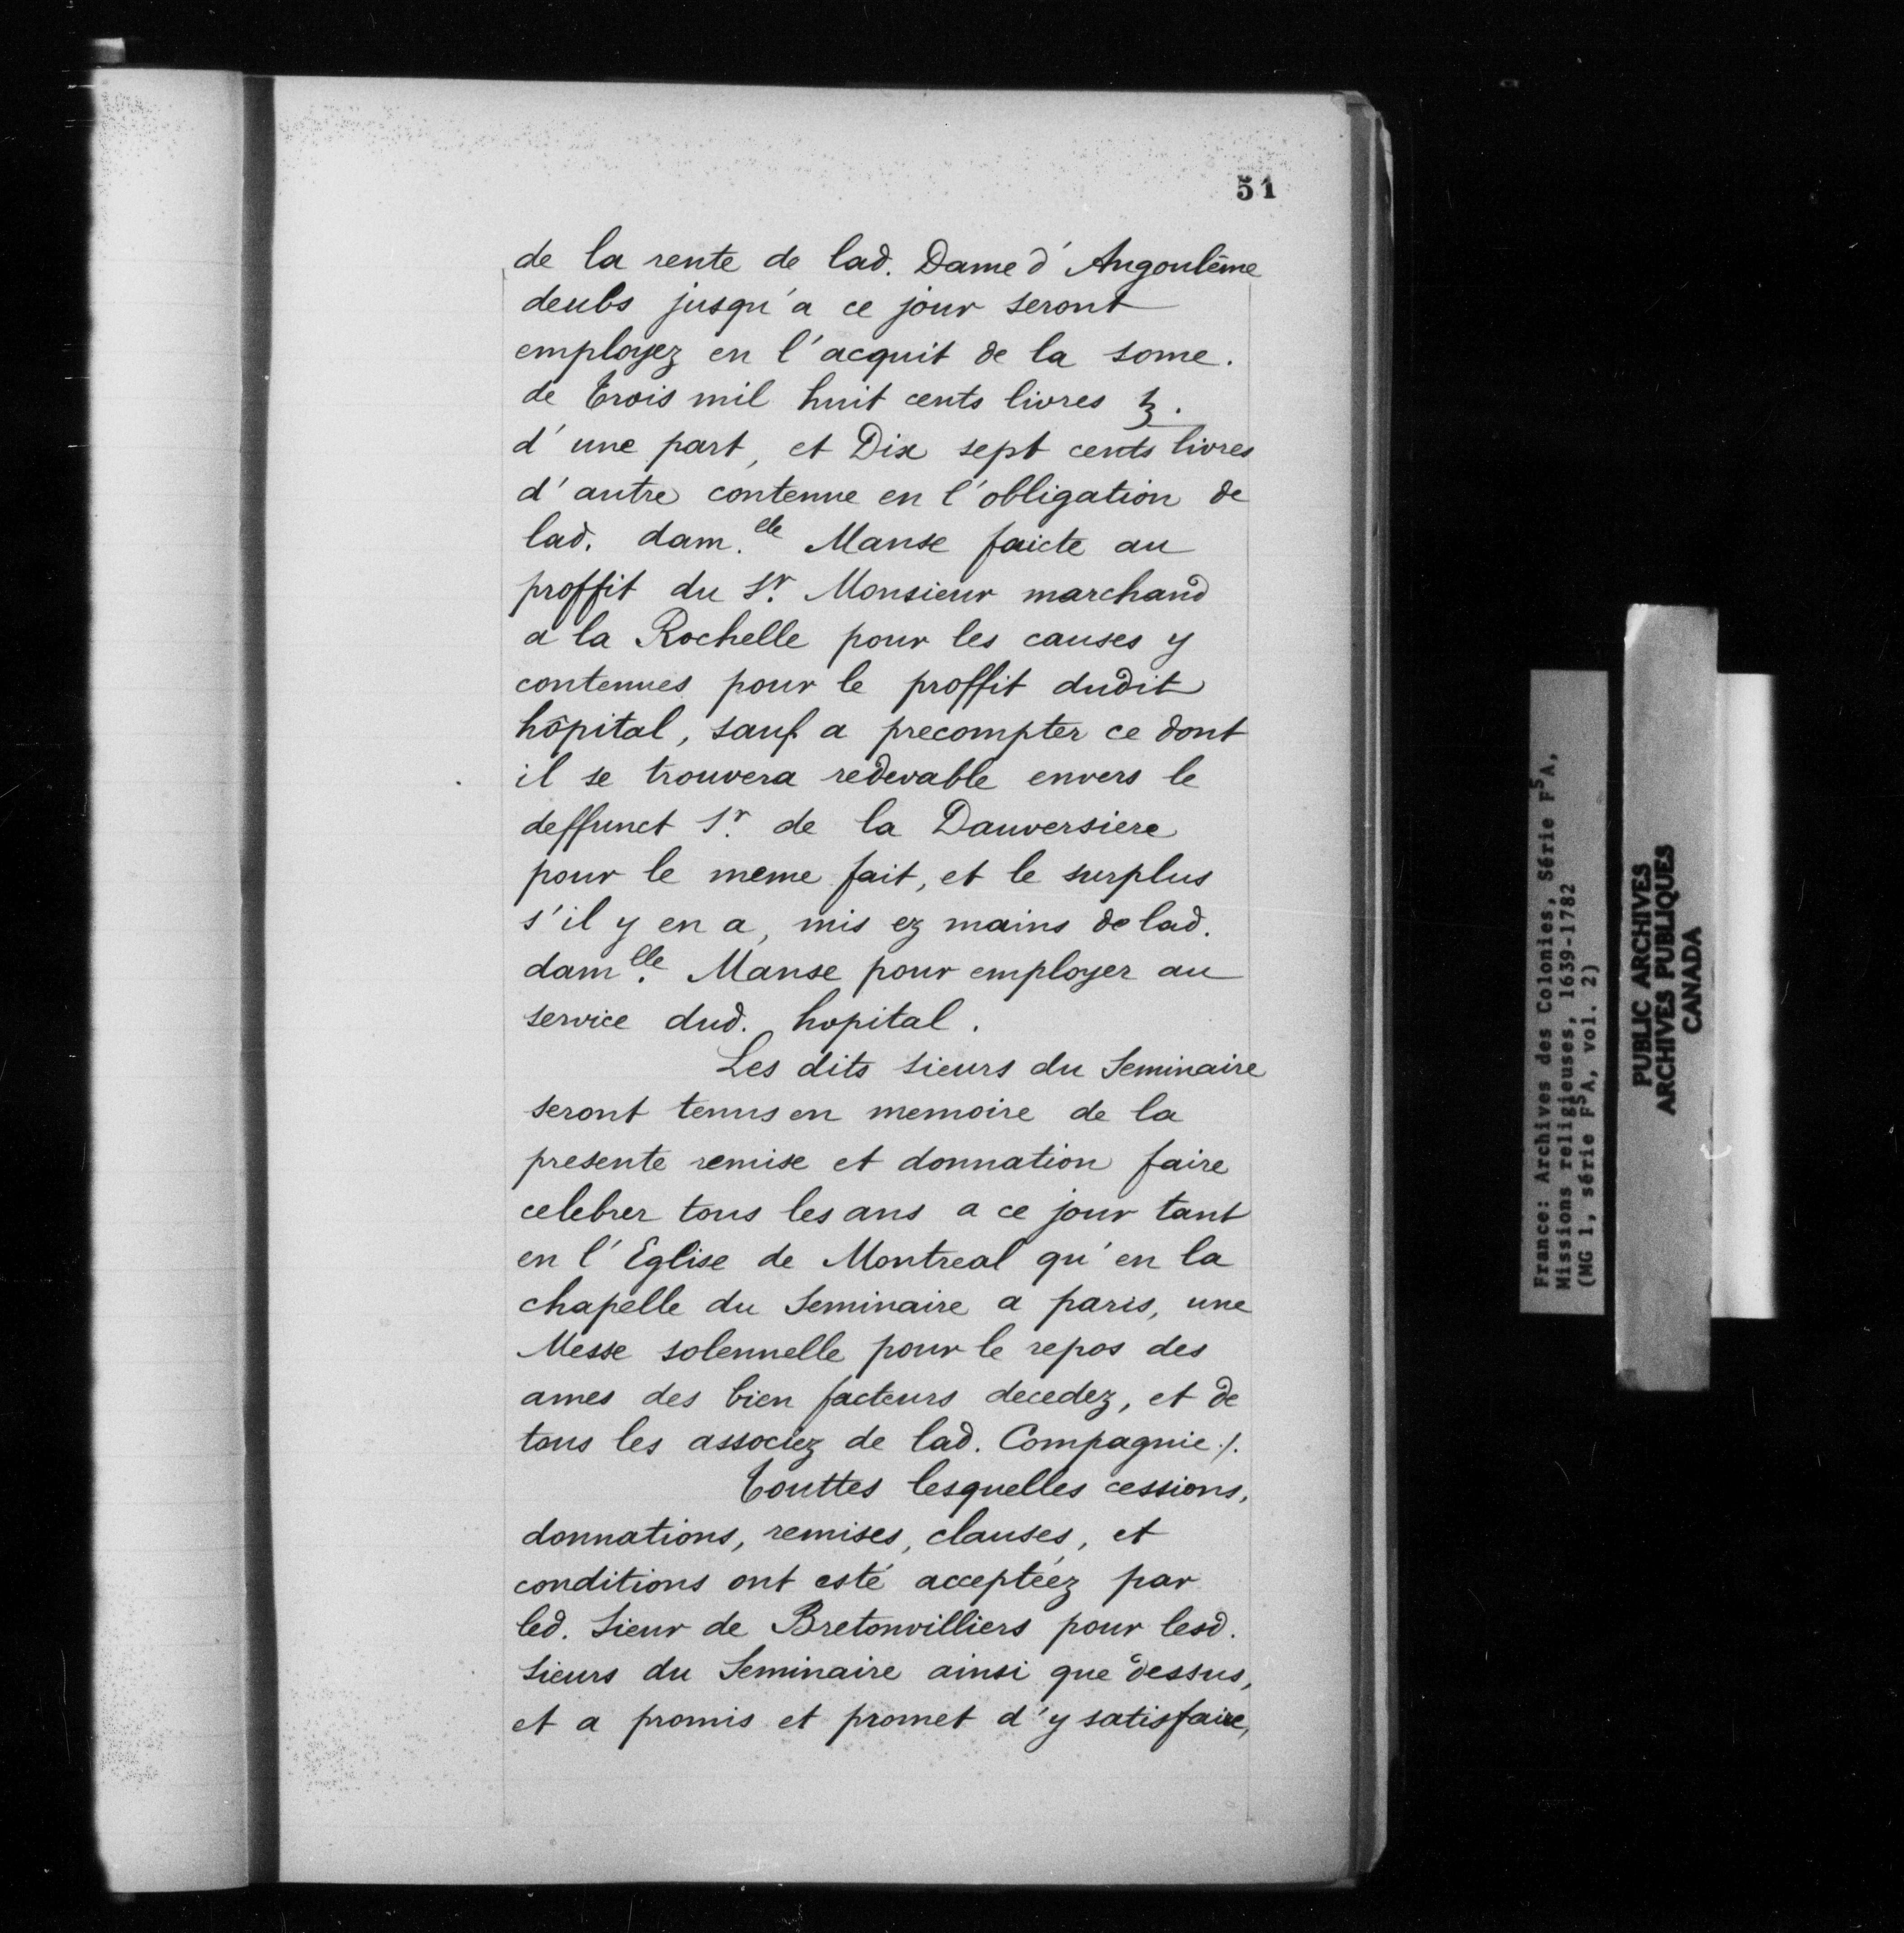 51
de la rente de lad. Dame d'Angoulême
deubs jusqu'a ce jour seront
employez en l'acquit de la some.
de Trois mil huit cents livres tz.
d'une part, et Dix sept cents livres
d'autre contenue en l'obligation de
lad. dam.elle Manse faicte au
proffit du Sr. Monsieur marchand
a la Rochelle pour les causes y
contenues pour le proffit dudit
hôpital, sauf a precompter ce dont
il se trouvera redevable envers le
deffunct Sr. de la Dauversiere
pour le meme fait, et le surplus
s'il y en a, mis ez mains de lad.
damlle. Manse pour employer au
service dud. hopital.
Les dits sieurs du Seminaire
seront tenus en memoire de la
presente remise et donnation faire
celebrer tous les ans a ce jour tant
en l'Eglise de Montreal qu'en la
chapelle du Seminaire a paris, une
Messe solennelle pour le repos des
ames des bien facteurs decedez, et de
tous les associez de lad. Compagnie ./.
Touttes lesquelles cessions,
donnations, remises, clauses, et
conditions ont esté acceptéez par
led. Sieur de Bretonvilliers pour lesd.
Sieurs du Seminaire ainsi que dessus,
et a promis et promet d'y satisfaire,
France: Archives des Colonies, Série F5A,
Missions religieuses, 1639-1782
(MG 1, série F5A, vol. 2)
PUBLIC ARCHIVES
ARCHIVES PUBLIQUES
CANADA